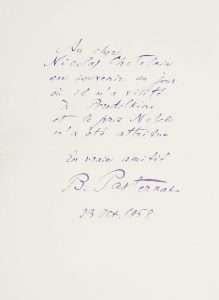 Au cher
Nicolas Chatelain
en souvenir du jour
où il m'a visité
à Peredelkino
et le prix Nobel
m'a été attribué
En vraie amitié
B. Pasternak
23 Oct. 1958